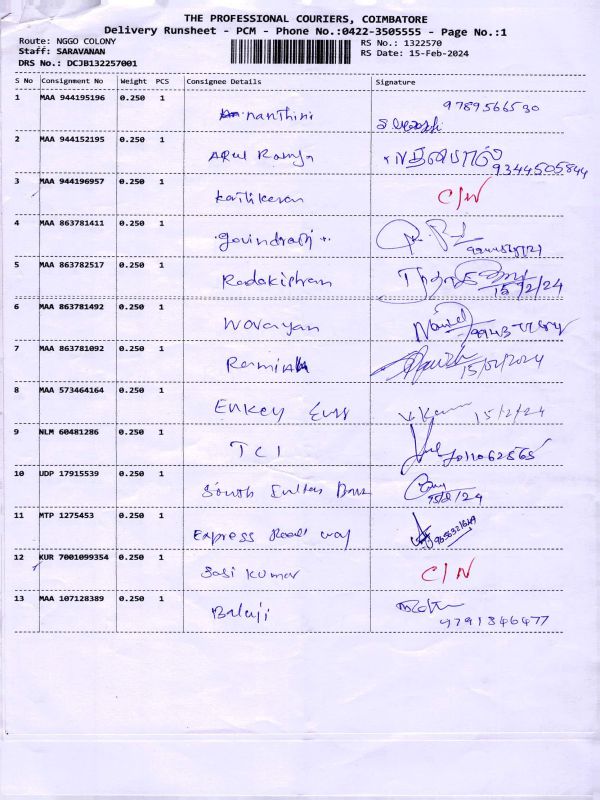 THE PROFESSIONAL COURIERS, COIMBATORE
Delivery Runsheet - PCM - Phone No.:0422-3505555 - Page No.:1
Route: NGGO COLONY
RS No.: 1322570
Staff: SARAVANAN
RS Date: 15-Feb-2024
DRS No.: DCJB132257001
S No Consignment No Weight PCS Consignee Details Signature
1 MAA 944195196 0.250 1 nanthini 9789566530
2 MAA 944152195 0.250 1 Arul Ramya 9344505844
3 MAA 944196957 0.250 1 C/N
4 MAA 863781411 0.250 1 govindraj
5 MAA 863782517 0.250 1 15/2/24
6 MAA 863781492 0.250 1
7 MAA 863781092 0.250 1 15/02/2024
8 MAA 573464164 0.250 1 Enkey 15/2/24
9 NLM 60481286 0.250 1 TCI
10 UDP 17915539 0.250 1 South
11 MTP 1275453 0.250 1 Express Road way
12 KUR 7001099354 0.250 1 Sasi Kumar C/N
13 MAA 107128389 0.250 1 Balaji
9791346477